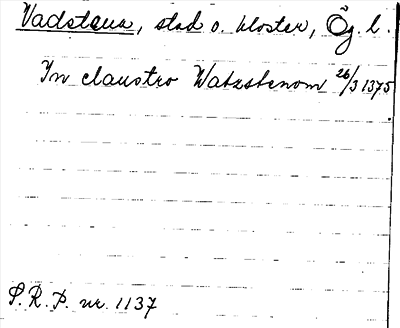 Vadstena, stad o. kloster, Ög. l.
In claustro Watzstenom 26/3 1375
S.R.P. nr. 1137